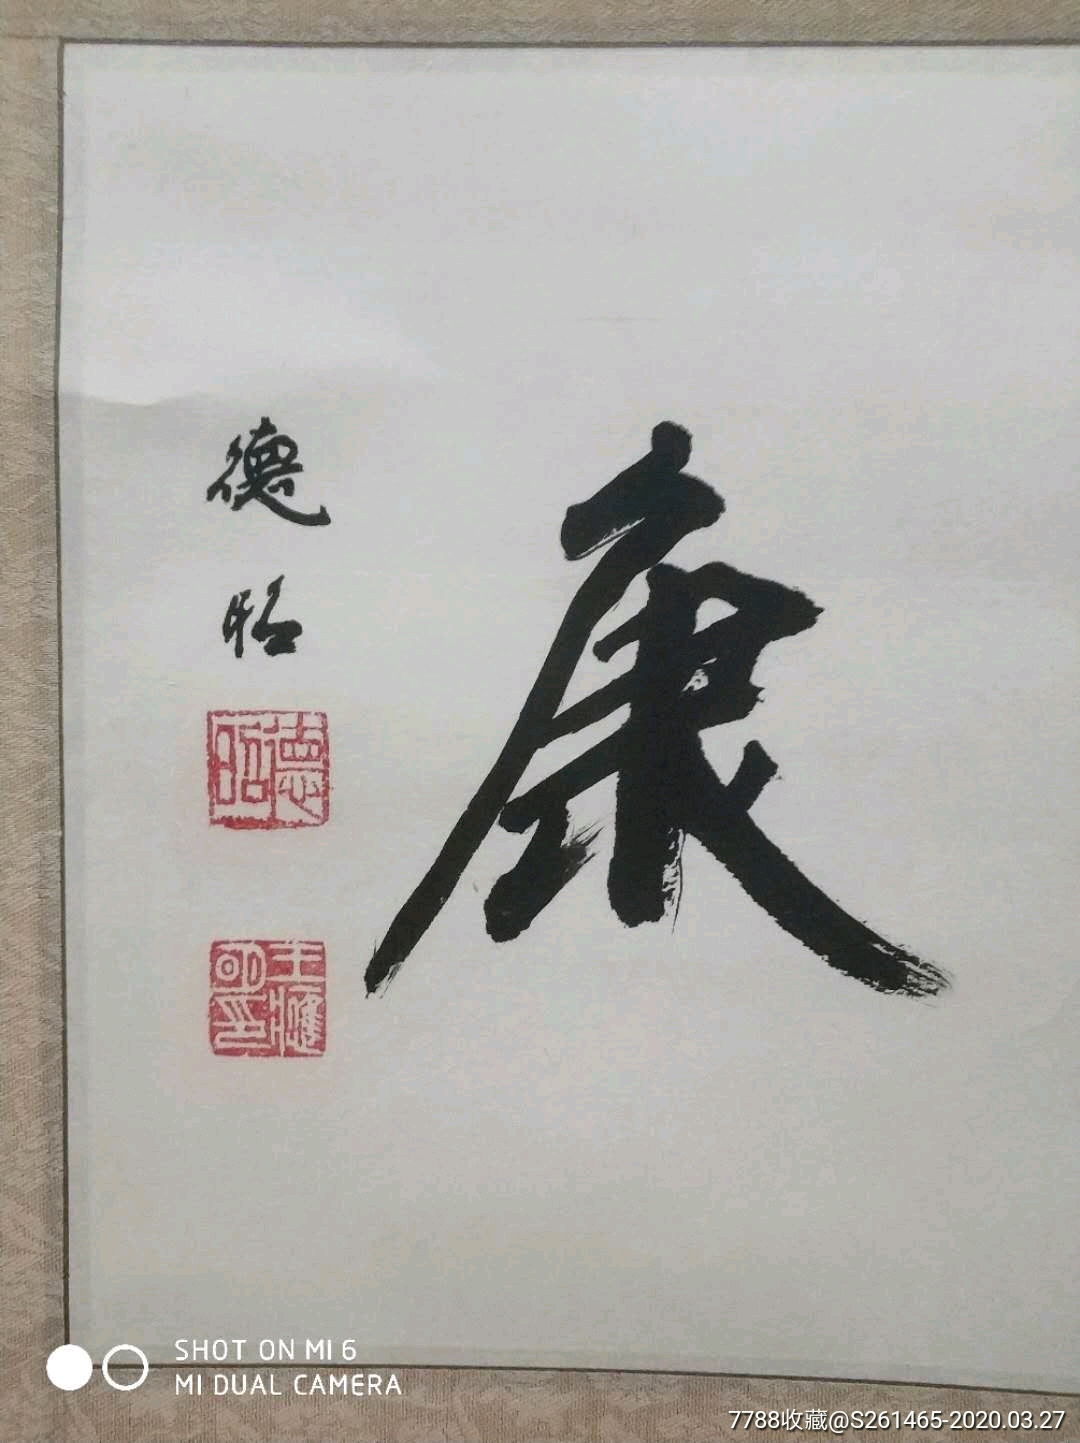 康
德昭
德昭
SHOT ON MI 6
MI DUAL CAMERA
7788收藏@S261465-2020.03.27